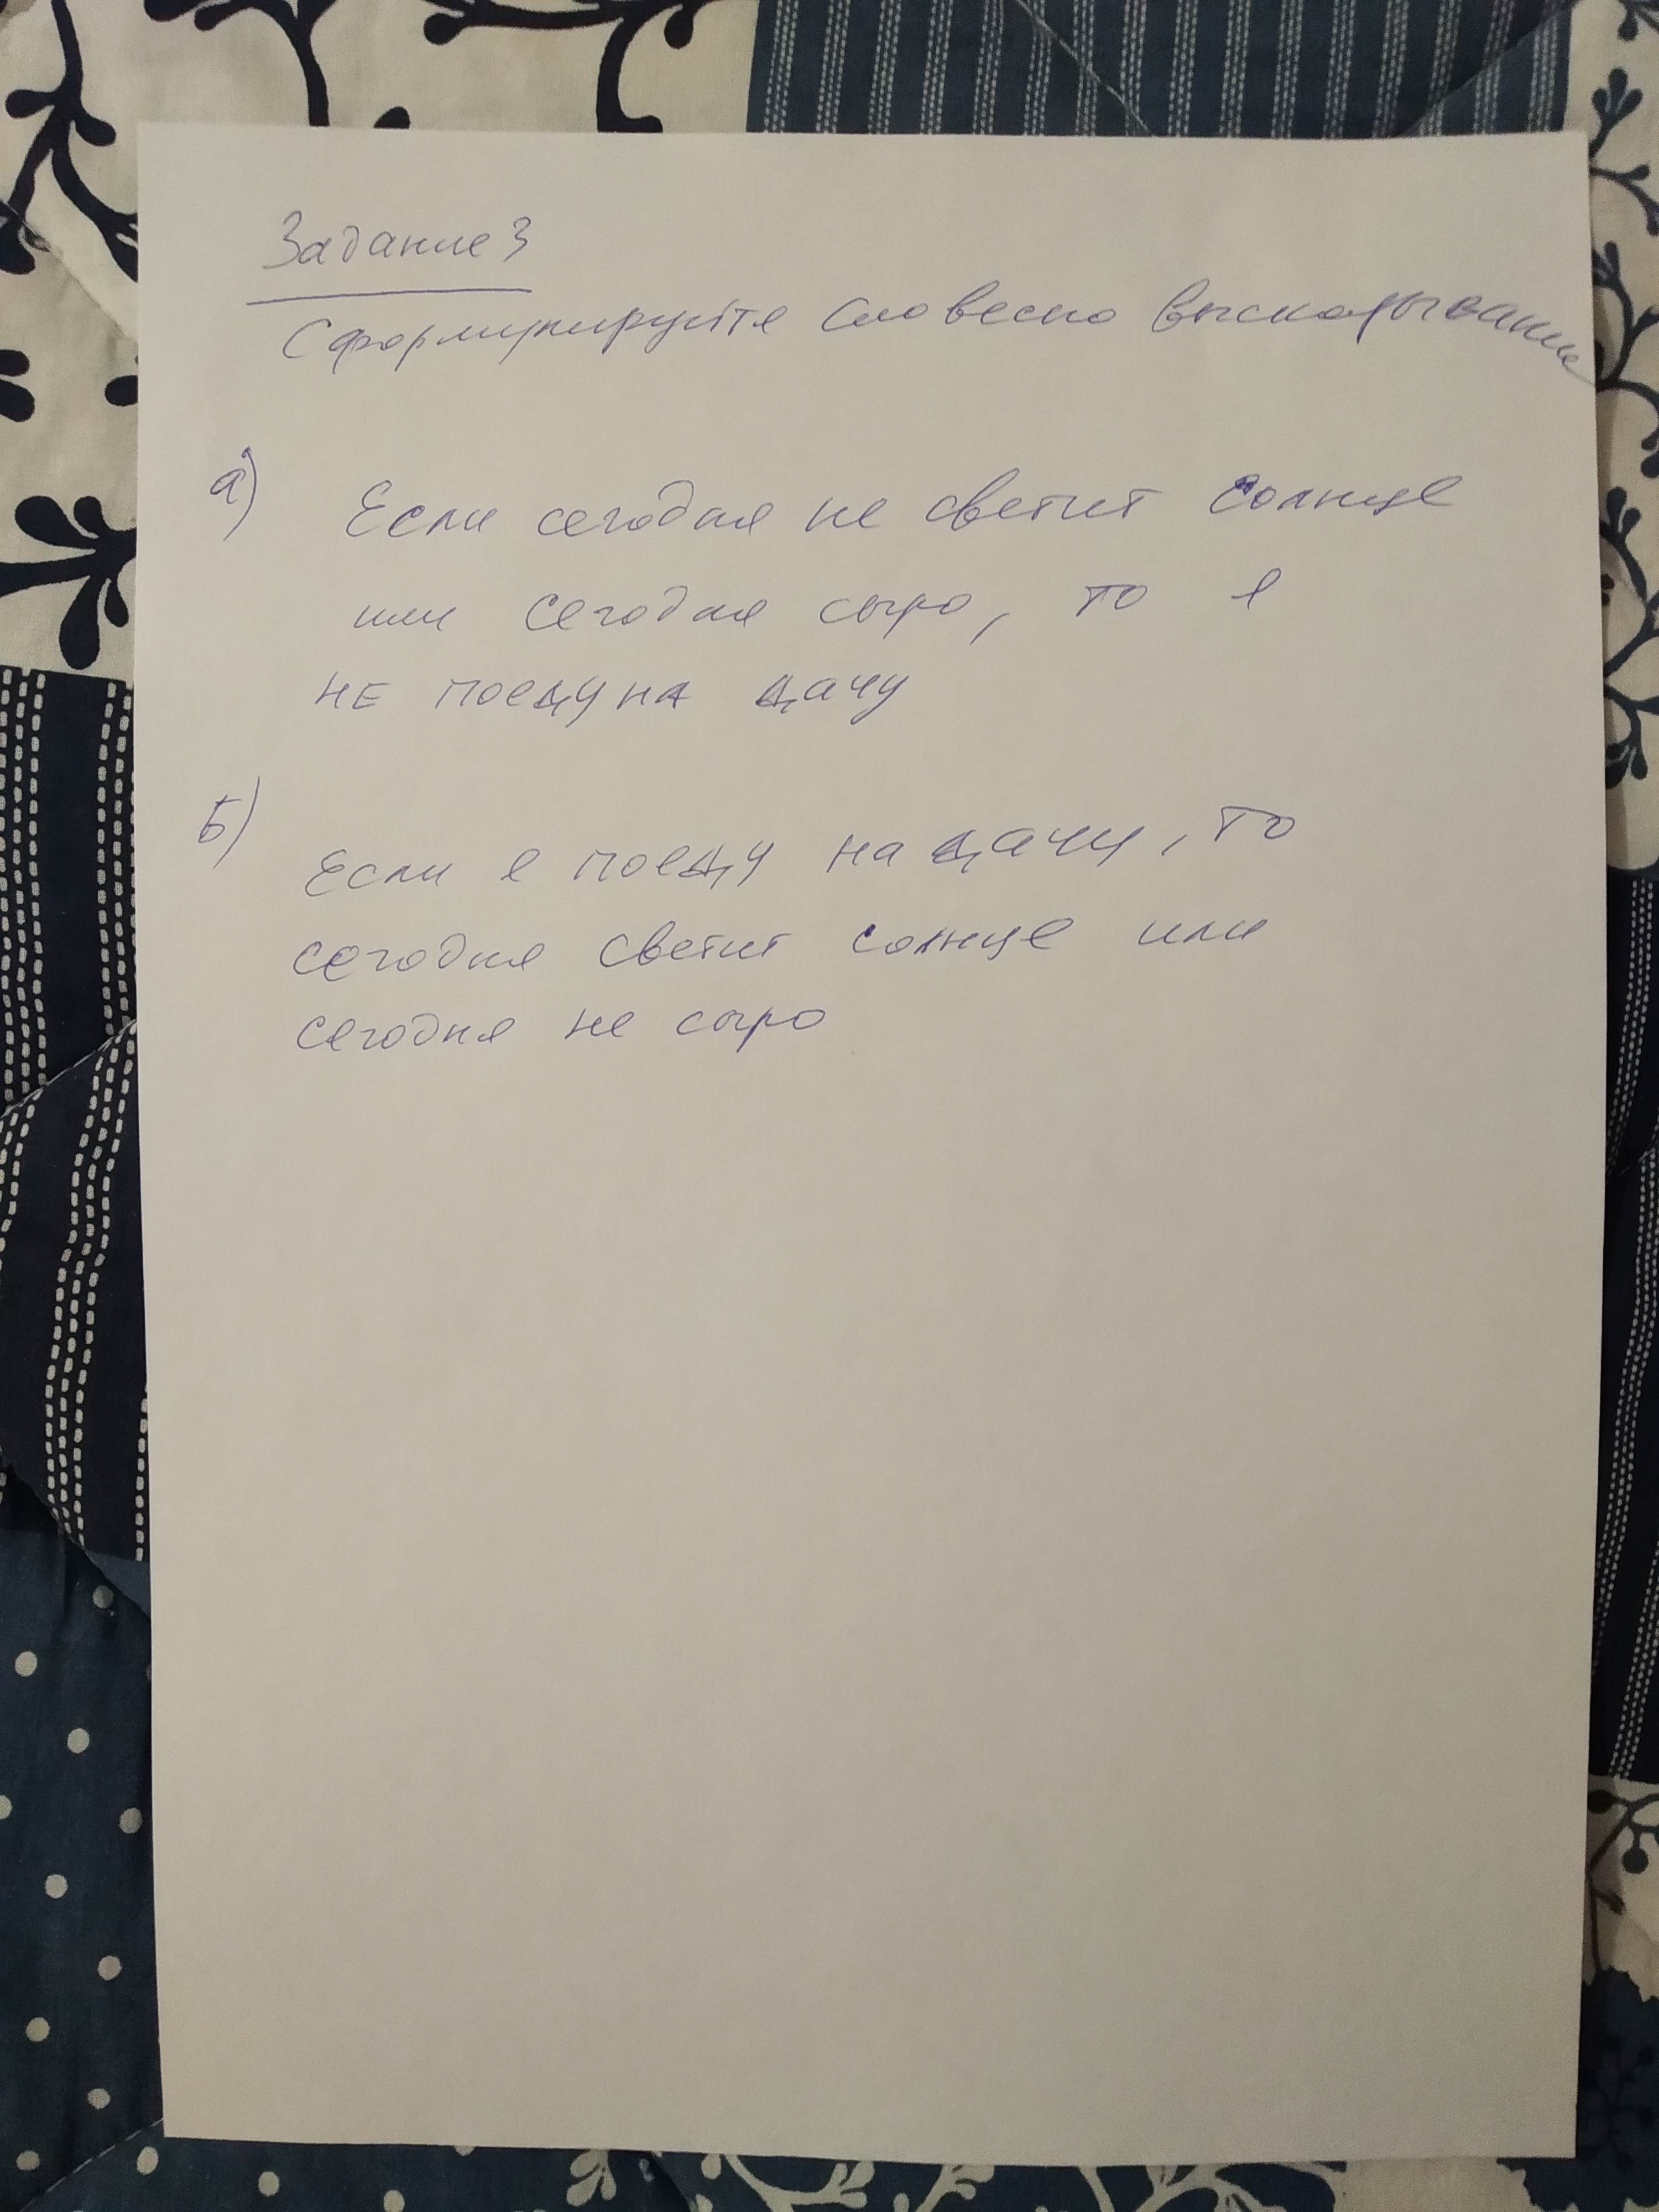 Задание 3
Сформулируйте словесно высказывание
а) Если сегодня не светит солнце
или сегодня сыро, то я
не поеду на дачу
Б) Если я поеду на дачу, то
сегодня светит солнце или
сегодня не сыро